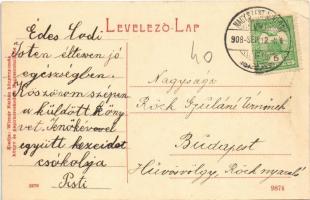 LEVELEZŐ-LAP
Édes Codi
Isten éltesen jó
egészségben.
Köszönöm szépen
a küldött köny-
vet. Önökével
együtt kezeidet
csókolja
Pisti
40
5
Nagysága
Röck Gyuláné Úrnőnek
Budapest
Hűvösvölgy, Röck nyaraló
9874